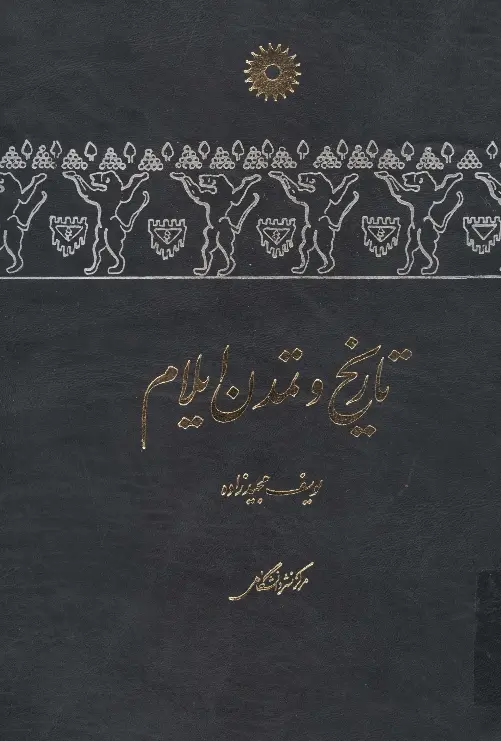 تاریخ و تمدن ایلام
یوسف مجیدزاده
مرکز نشر دانشگاهی